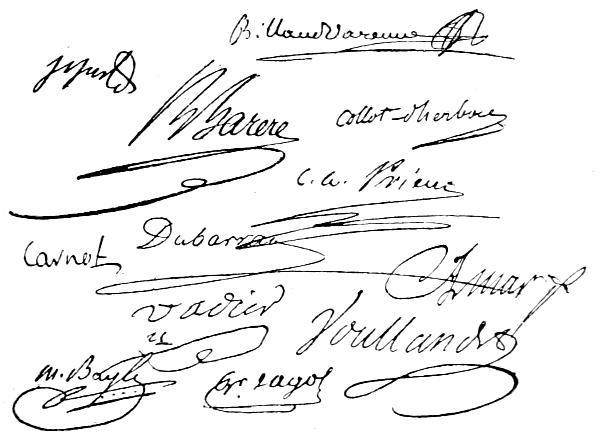 Billaud Varenne
St Just
B Barere
Collot-d'herbois
C. A. Prieur
Carnot
Dubarran
Amar
Vadier
Voulland
M. Bayle